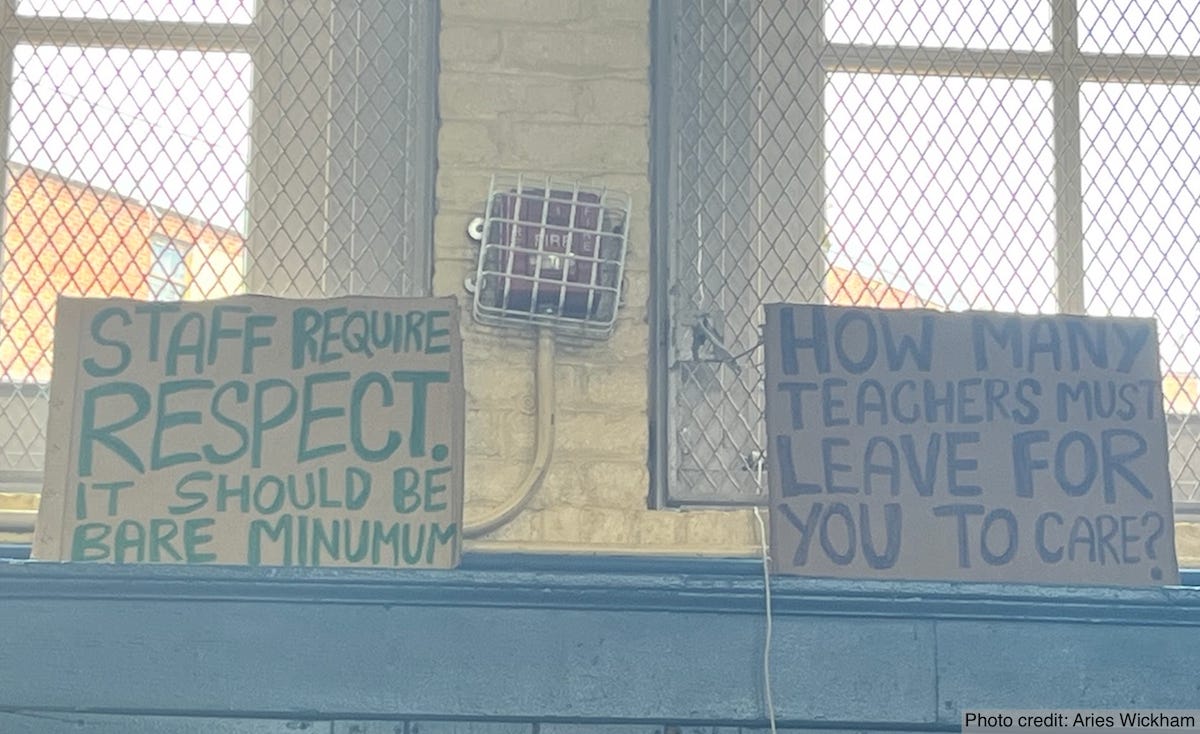 STAFF REQUIRE
RESPECT.
IT SHOULD BE
BARE MINUMUM
FIRE
HOW MANY
TEACHERS MUST
LEAVE FOR
YOU TO CARE?
Photo credit: Aries Wickham